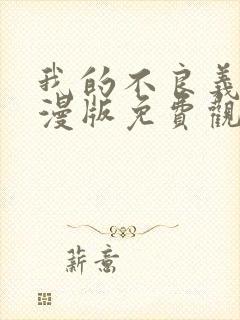 我的不良義
漫版免費觀
薪意